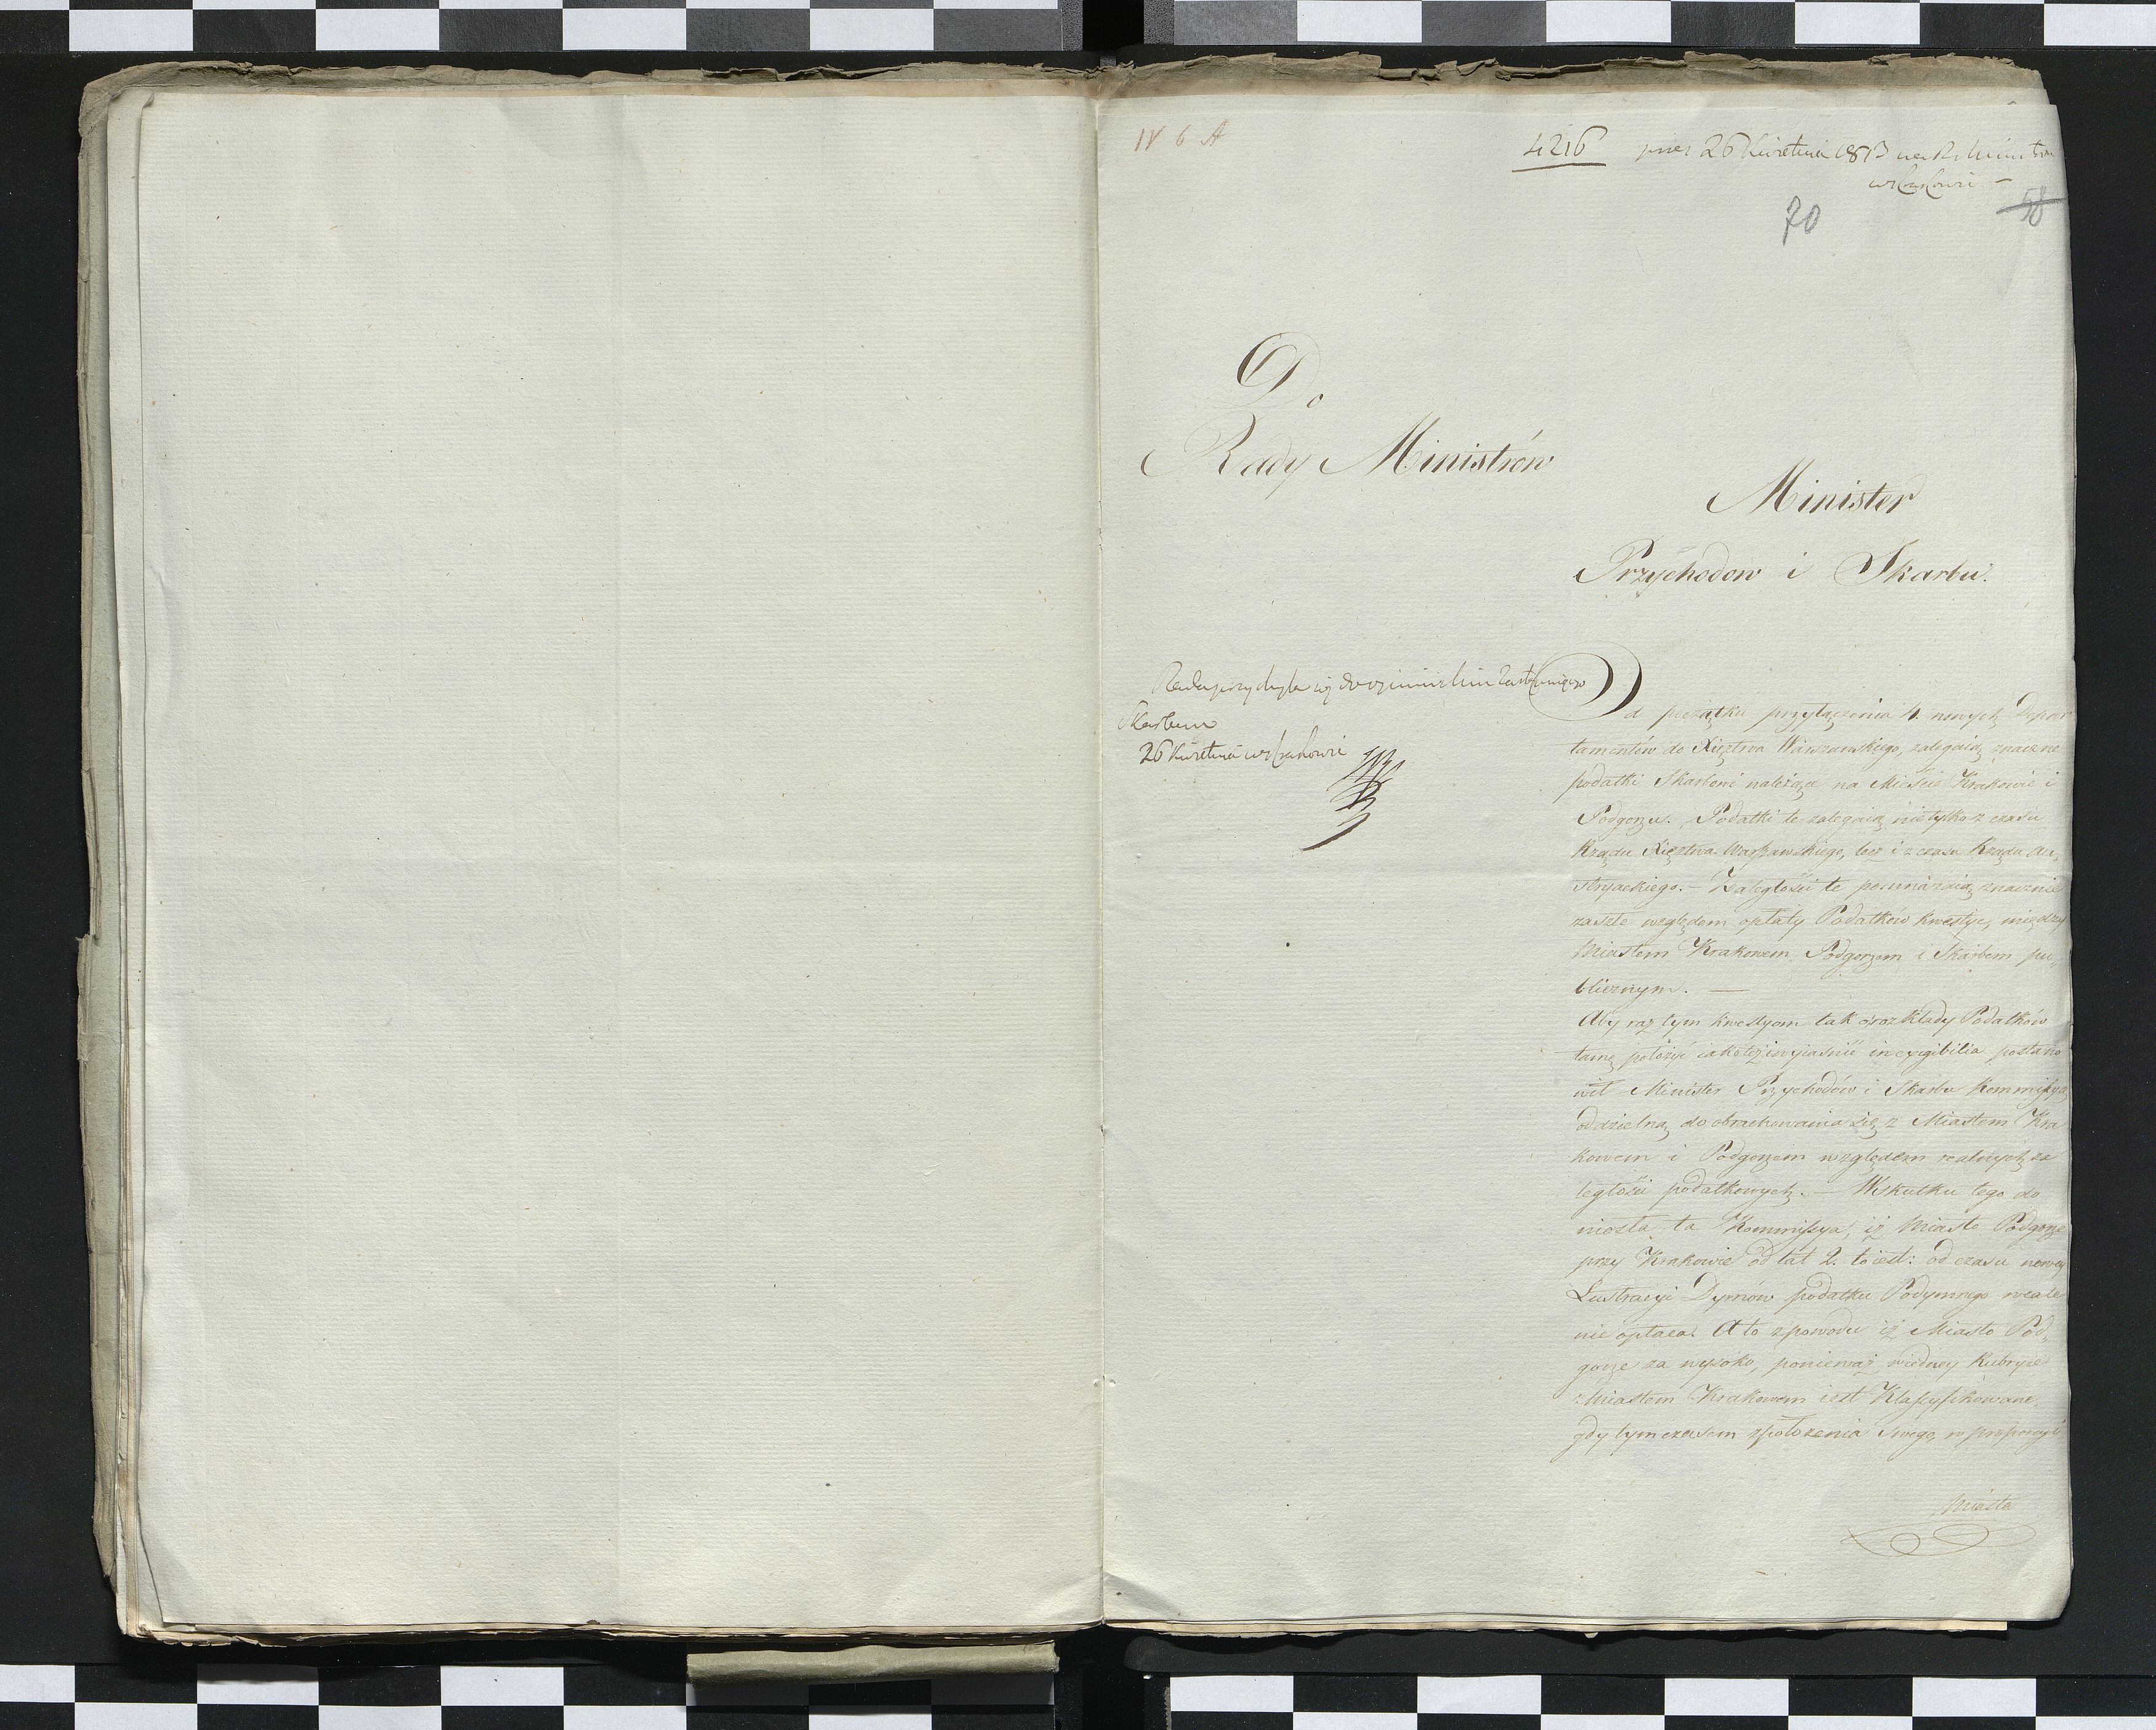 IV 6 A
4216 26 Kwietnia 1813 na R. Ministrów
w Krakowie –
58
70
Do
Rady Ministrów
Minister
Przychodow i Skarbu.
Rada przychyla się do wniosku
Skarbu
26 Kwietnia w Krakowie
Od początku przyłączenia 4. nowych Depar
tamentów do Xięztwa Warszawskiego, zalegaią znaczne
podatki Skarbowi należące na Mieście Krakowie i
Podgorzu. Podatki te zalegaią nietylko z czasu
Rządu Xięztwa Warszawskiego, lecz i z czasu Rządu Au„
stryackiego. – Zaległości te pomnażaią znacznie
zaszłe względem opłaty Podatków kwestye, między
Miastem Krakowem, Podgorzem i Skarbem pu„
blicznym. —
Aby raz tym kwestyom tak o rozkłady Podatków
tamę położyć iakoteż wyiaśnić inexigibilia postano
wił Minister Przychodów i Skarbu Kommissyą
oddzielną do obrachowania się z Miastem Kra
kowem i Podgorzem względem realnych za
ległości podatkowych. – Wskutku tego do
niosła ta Kommissya, iż Miasto Podgorze
przy Krakowie od lat 2. to iest: od czasu nowey
Lustracyi Dymów podatku Podymnego wcale
nie opłaca. A to z powodu iż Miasto Pod„
gorze za wysoko, ponieważ w iedney Rubryce
z Miastem Krakowem iest Klassyfikowane,
gdy tymczasem z położenia swego, w proporcyi
Miasta